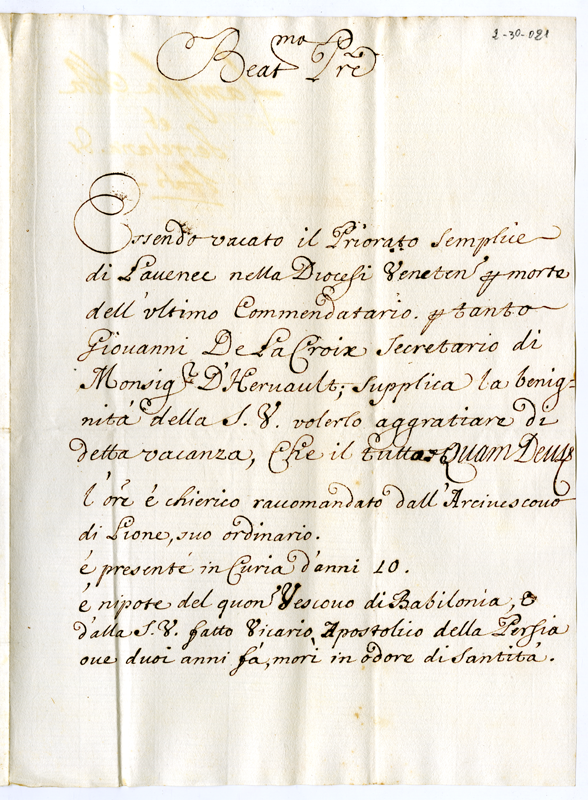 2-30-021
Beat.mo Pre
Essendo vacato il Priorato semplice
di Lavenec nella Diocesi Veneten' p morte
dell' vltimo Commendatario. p tanto
Giouanni De La Croix secretario di
Monsig.r D'Heruault; supplica la benig=
nità della S. V. volerlo aggratiare di
detta vacanza, Che il tutto Quam Deus
l'ore é chierico raccomandato dall'Arciuescouo
di Lione, suo ordinario.
é presente in Curia d'anni 10.
é nipote del quon' Vescouo di Babilonia, e
dalla S. V. fatto Vicario Apostolico della Persia
oue duoi anni fà, morì in odore di santità.